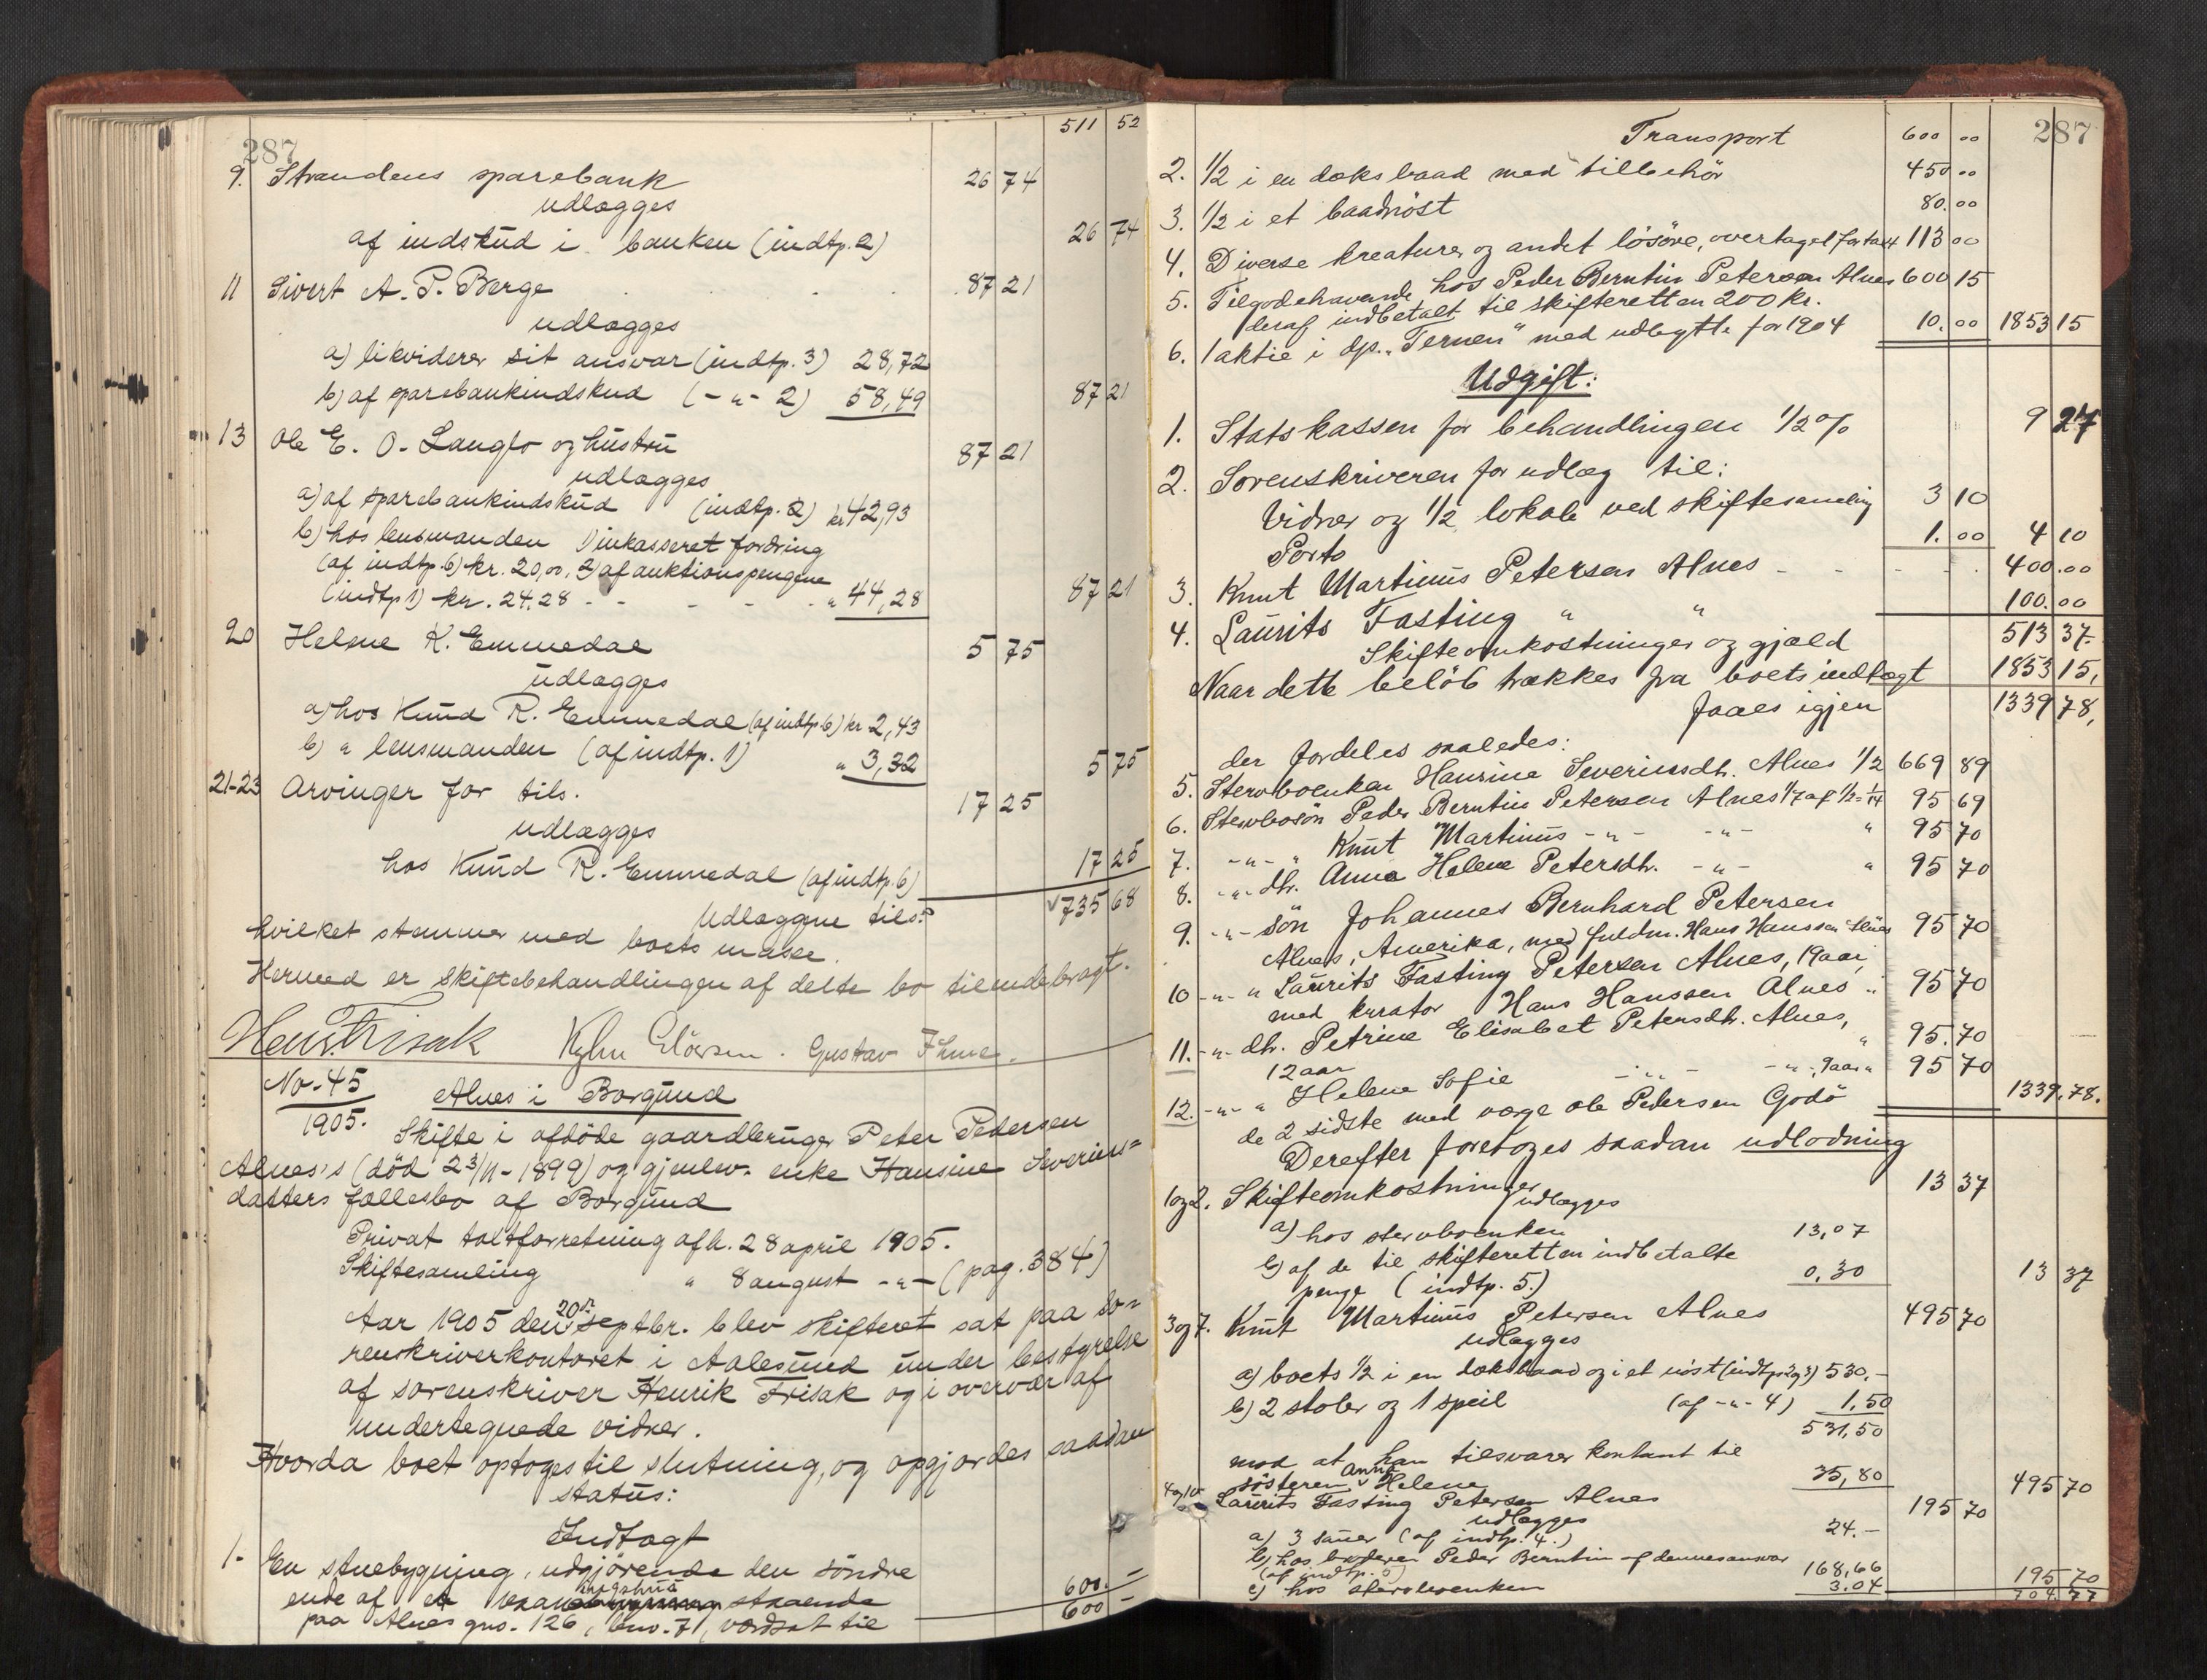 511 52
287
9. Strandens sparebank 26 74
udlægges
af indskud i banken (indtp. 2) 26 74
11 Sivert A. P. Berge 87 21
udlægges
a) likviderer sit ansvar (indtp. 3) 28,72
b) af sparebankindskud (-"- 2) 58,49 87 21
13 Ole E. O. Langlo og hustru 87 21
udlægges
a) af sparebankindskud (indtp. 2) kr 42,93
b) hos lensmanden 1) inkasseret fordring
(af indtp. 6) kr. 20,00, 2) af auktionspengene
(indtp 1) kr. 24.28 - - - - - " 44,28 87 21
20 Helene K. Emmedal 5 75
udlægges
a) hos Knud R. Emmedal (af indtp 6) kr 2,43
b) " lensmanden (af indtp. 1) " 3,32 5 75
21-23 Arvinger for tils. 17 25
udlægges
hos Knud R. Emmedal (af indtp. 6) 17 25
Udlæggene tils. 735 68
hvilket stemmer med boets masse.
Hermed er skiftebehandlingen af dette bo tilendebragt.
Henr. Frisak Gustav
No. 45
1905. Alnes i Borgund
Skifte i afdöde gaardbruger Peter Pedersen
Alnes's (död 23/11-1899) og gjenlev. enke Hansine Severins=
datters fællesbo af Borgund
Privat taktforretning afh. 28 april 1905.
Skiftesamling " 8 august -"- (pag. 384)
Aar 1905 den 20de septbr. blev skifteret sat paa so-
renskriverkontoret i Aalesund under bestyrelse
af sorenskriver Henrik Frisak og i overvær af
undertegnede vidner.
Hvorda boet optoges til slutning, og opgjordes saadan
status:
Indtægt
1. En stuebygning, udgjörende den söndre
ende af et vaaningshus staaende 600. -
paa Alnes gno. 126, bno. 7, værdsat til 600 -
287
Transport 600 00
2. 1/2 i en dæksbaad med tilbehör 450 00
3. 1/2 i et baadnöst 80. 00
4. Diverse kreaturer og andet lösöre, overtaget for takt 113 00
5. Tilgodehavende hos Peder Berntin Petersen Alnes 600 15
heraf indbetalt til skifteretten 200 kr.
6. 1 aktie i dp. "Ternen" med udbytte for 1904 10. 00 1853 15
Udgift:
1. Statskassen for behandlingen 1/2 % 9 27
2. Sorenskriveren for udlæg til:
Vidner og 1/2 lokale ved skiftesamling 3 10
Porto 1. 00 4 10
3. Knut Martinus Petersen Alnes - - - - 400. 00
4. Laurits Fasting " " 100. 00
Skifteomkostninger og gjæld 513 37.
Naar dette belöb trækkes fra boets indtægt 1853 15,
faaes igjen 1339 78,
der fordeles saaledes:
5. Stervboenken Hansine Severinsdtr. Alnes 1/2 669 89
6. Stervbosön Peder Berntin Petersen Alnes 1/7 af 1/2 = 1/14 95 69
7. -"- " Knut Martinus -"- -"- " 95 70
8. -"- dtr. Anna Helene Petersdtr. -"- " 95 70
9. -"- sön Johannes Bernhard Petersen
Alnes, Amerika, med fuldm. Hans Hanssen Alnes 95 70
10 -"- " Laurits Fasting Petersen Alnes, 19 aar,
med kurator Hans Hanssen Alnes " 95 70
11. -"- dtr. Petrine Elisabet Petersdtr. Alnes,
12 aar " 95. 70
12. -"- " Helene Sofie -"- -"-, 9 aar " 95 70
de 2 sidste med værge Ole Pedersen Godö 1339. 78.
Derefter foretoges saadan udlodning
1 og 2. Skifteomkostninger 13 37
udlægges
a) hos stervboenken 13,07
b) af de til skifteretten indbetalte
penge (indtp. 5.) 0,30 13 37
3 og 7. Knut Martinus Petersen Alnes 495 70
udlægges
a) boets 1/2 i en dæksbaad og i et nöst (indtp 2 og 3) 530. -
b) 2 stoler og 1 speil (af -"- 4) 1,50
531,50
mod at han tilsvarer kontant til
sösteren Anna Helene 35,80 495 70
4 og 10 Laurits Fasting Petersen Alnes 195 70
udlægges
a) 3 sauer (af indtp. 4.) 24. -
b) hos broderen Peder Berntin af dennes ansvar
(af indtp. 5) 168,66
c) hos stervboenken 3.04 195 70
704. 77